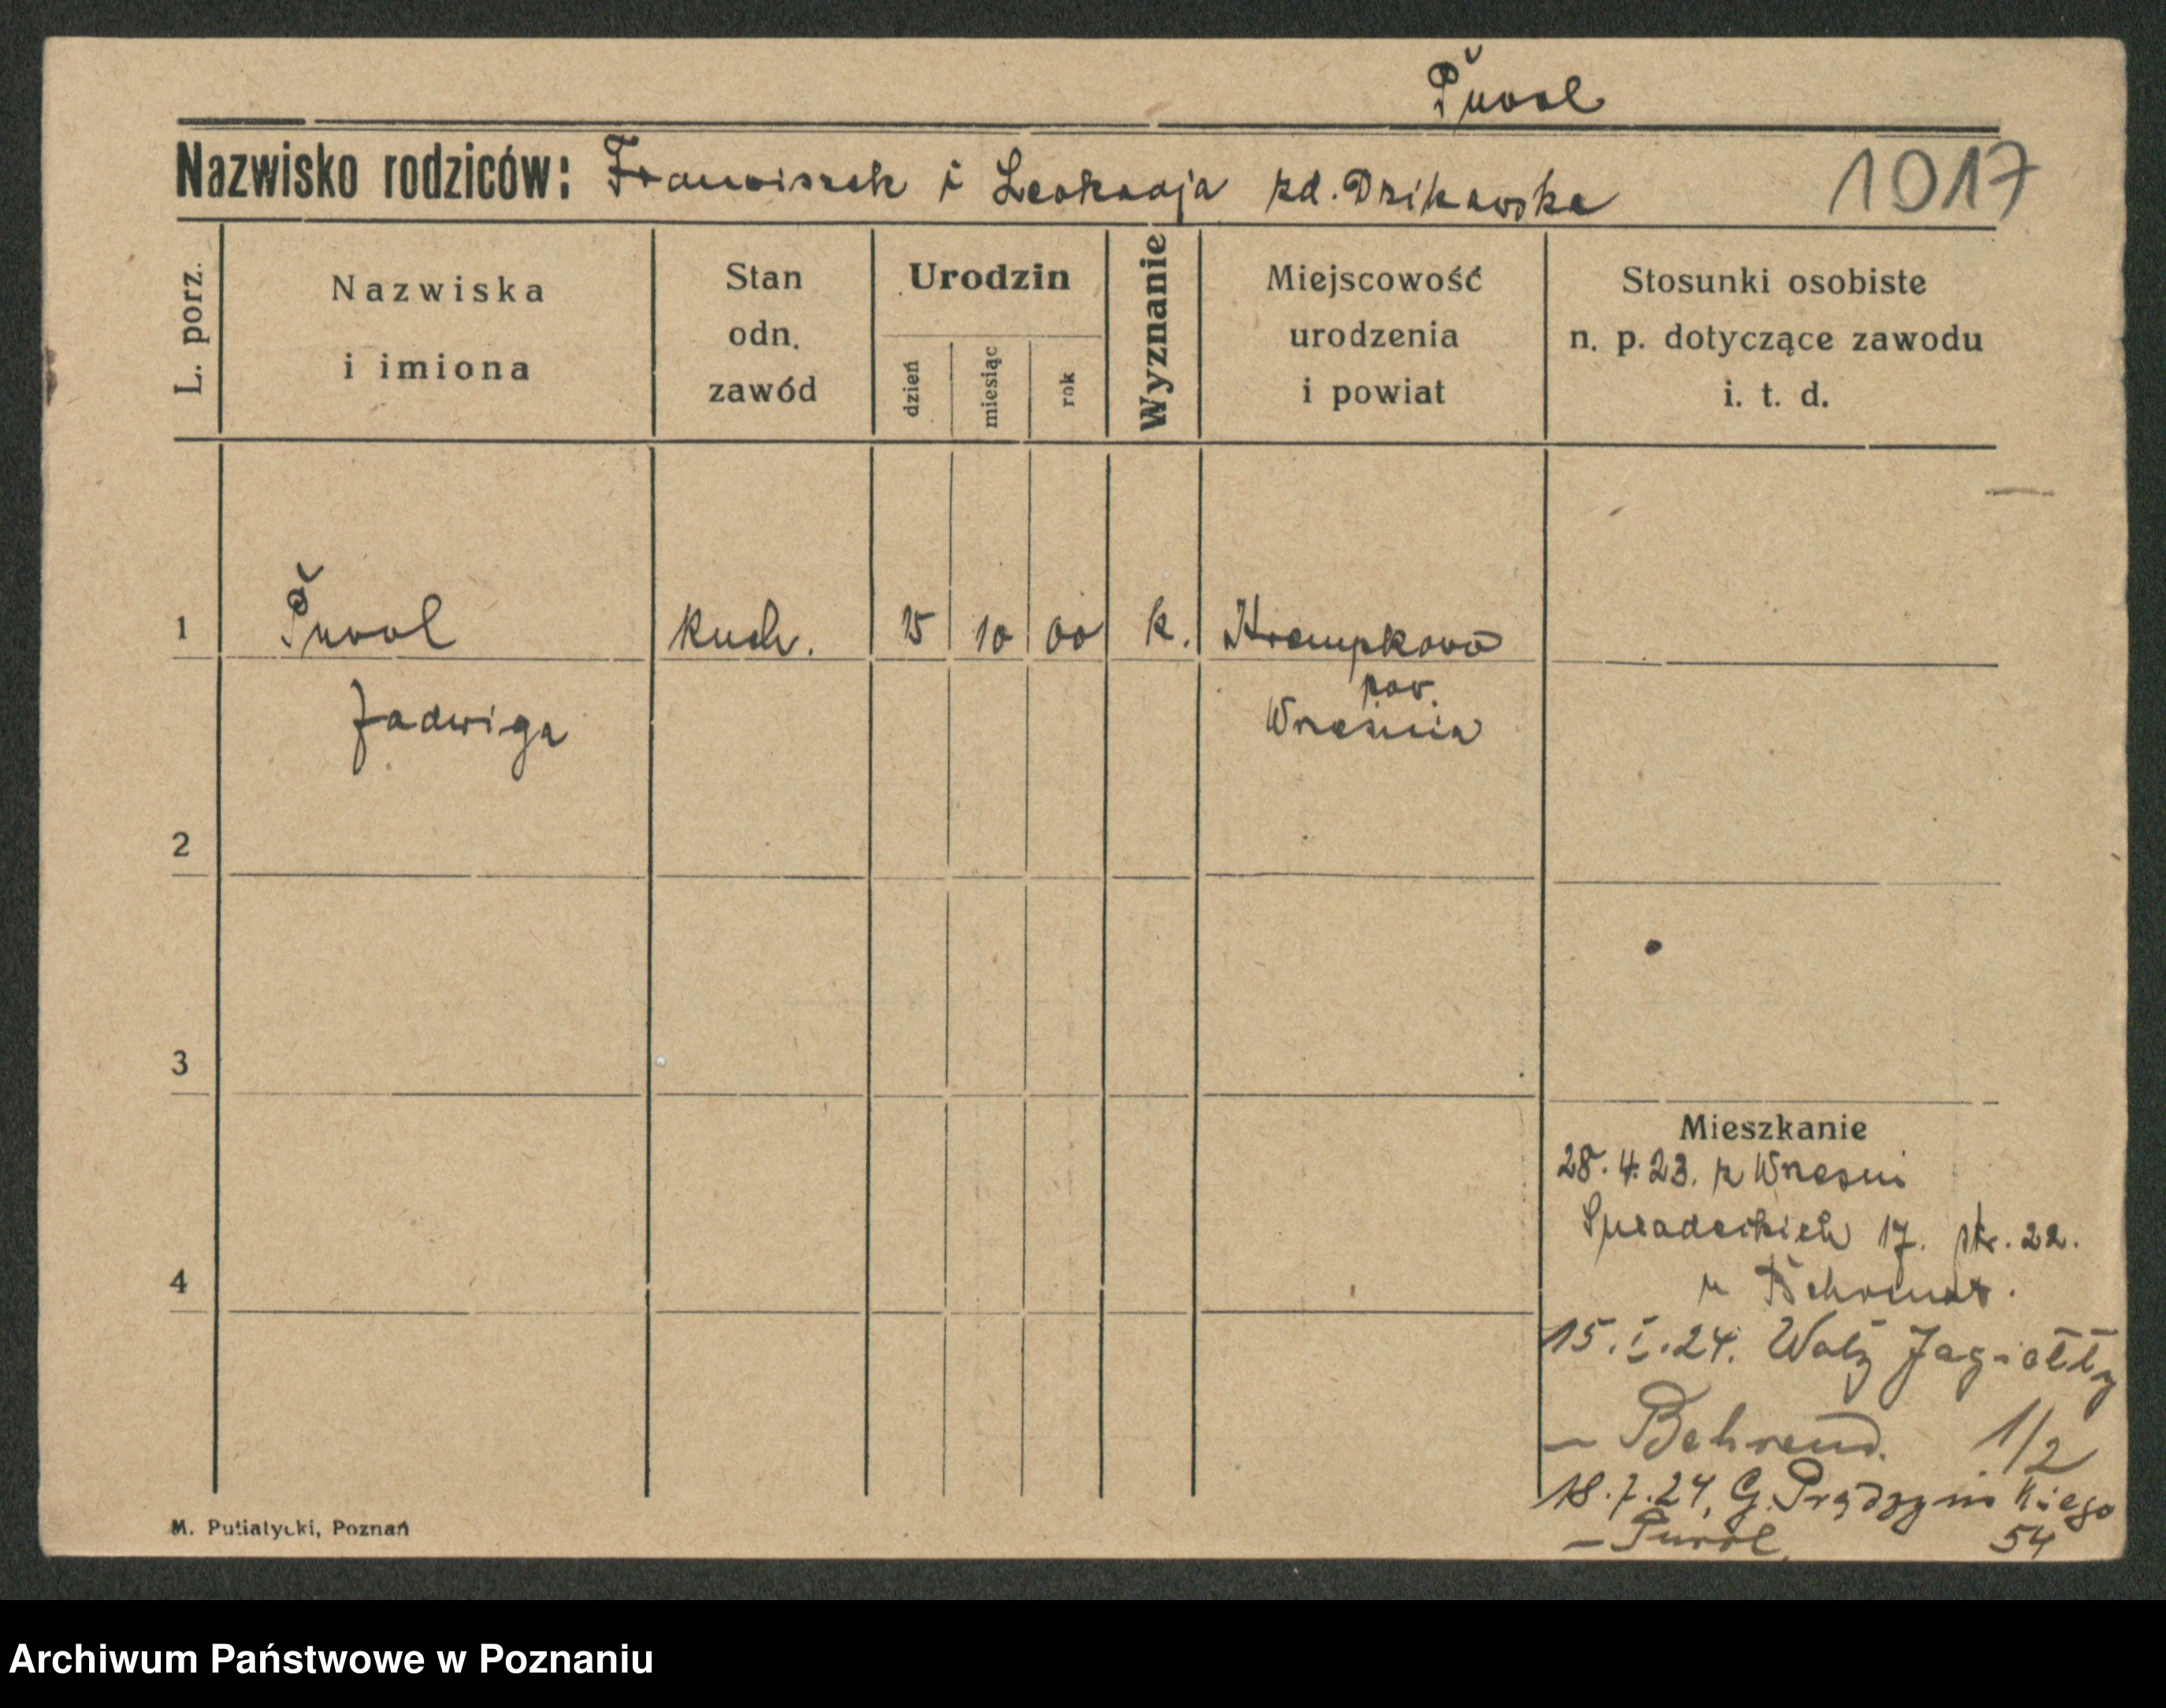 Puvol
Nazwisko rodziców: Franciszek i Leokadja zd. Dzikowska 1017
L. porz.
Nazwiska i imiona
Stan odn. zawód
Urodzin
dzień miesiąc rok
Wyznanie
Miejscowość urodzenia i powiat
Stosunki osobiste n. p. dotyczące zawodu i. t. d.
1 Kuch. 15 10 00 k.
pow.
Jadwiga Września
2
3
4
Mieszkanie
28.4.23. z Wrześni
17. ptr. 22.
15.I.24. Wały Jagiełły
– Behrend. 1/2
18.7.24, G. Prądzyńskiego
54
M. Putiatycki, Poznań
Archiwum Państwowe w Poznaniu